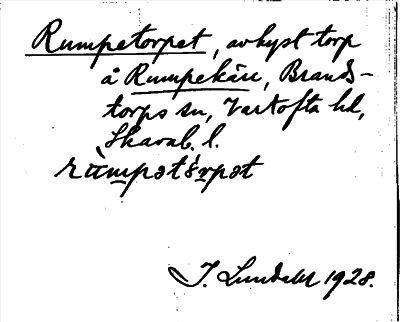 Rumpetorpet, avhyst torp
å Rumpekärr, Brands-
torps sn, Vartofta hd,
Skarab. l.
rùmpətɤ́rpət
J. Lundahl 1928.